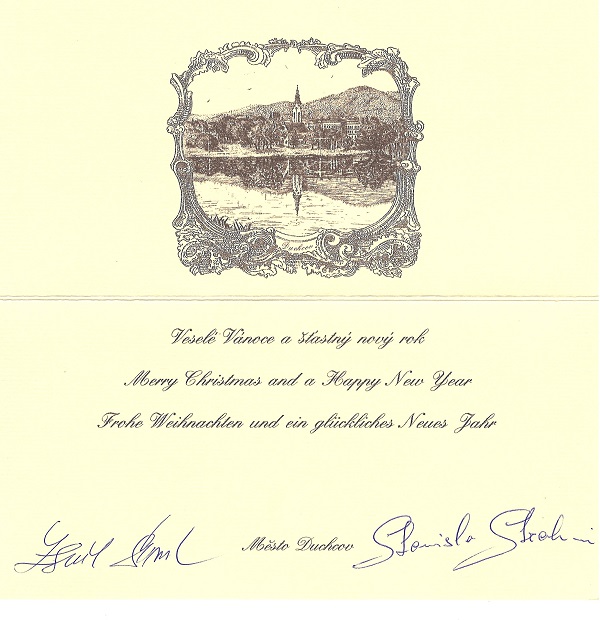 Duchcov
Veselé Vánoce a šťastný nový rok
Merry Christmas and a Happy New Year
Frohe Weihnachten und ein glückliches Neues Jahr
Město Duchcov